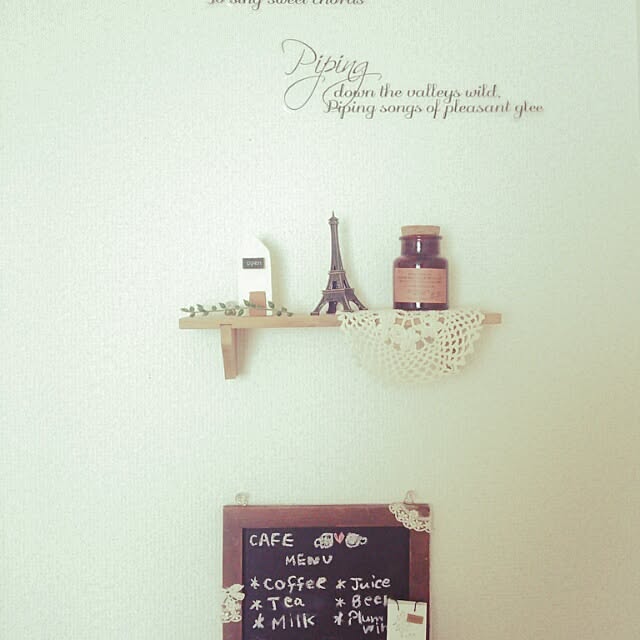 So sing sweet chords
Piping
down the valleys wild,
Piping songs of pleasant glee
open
CAFE
MENU
*Coffee *Juice
*Tea *Beer
*Milk *Plum